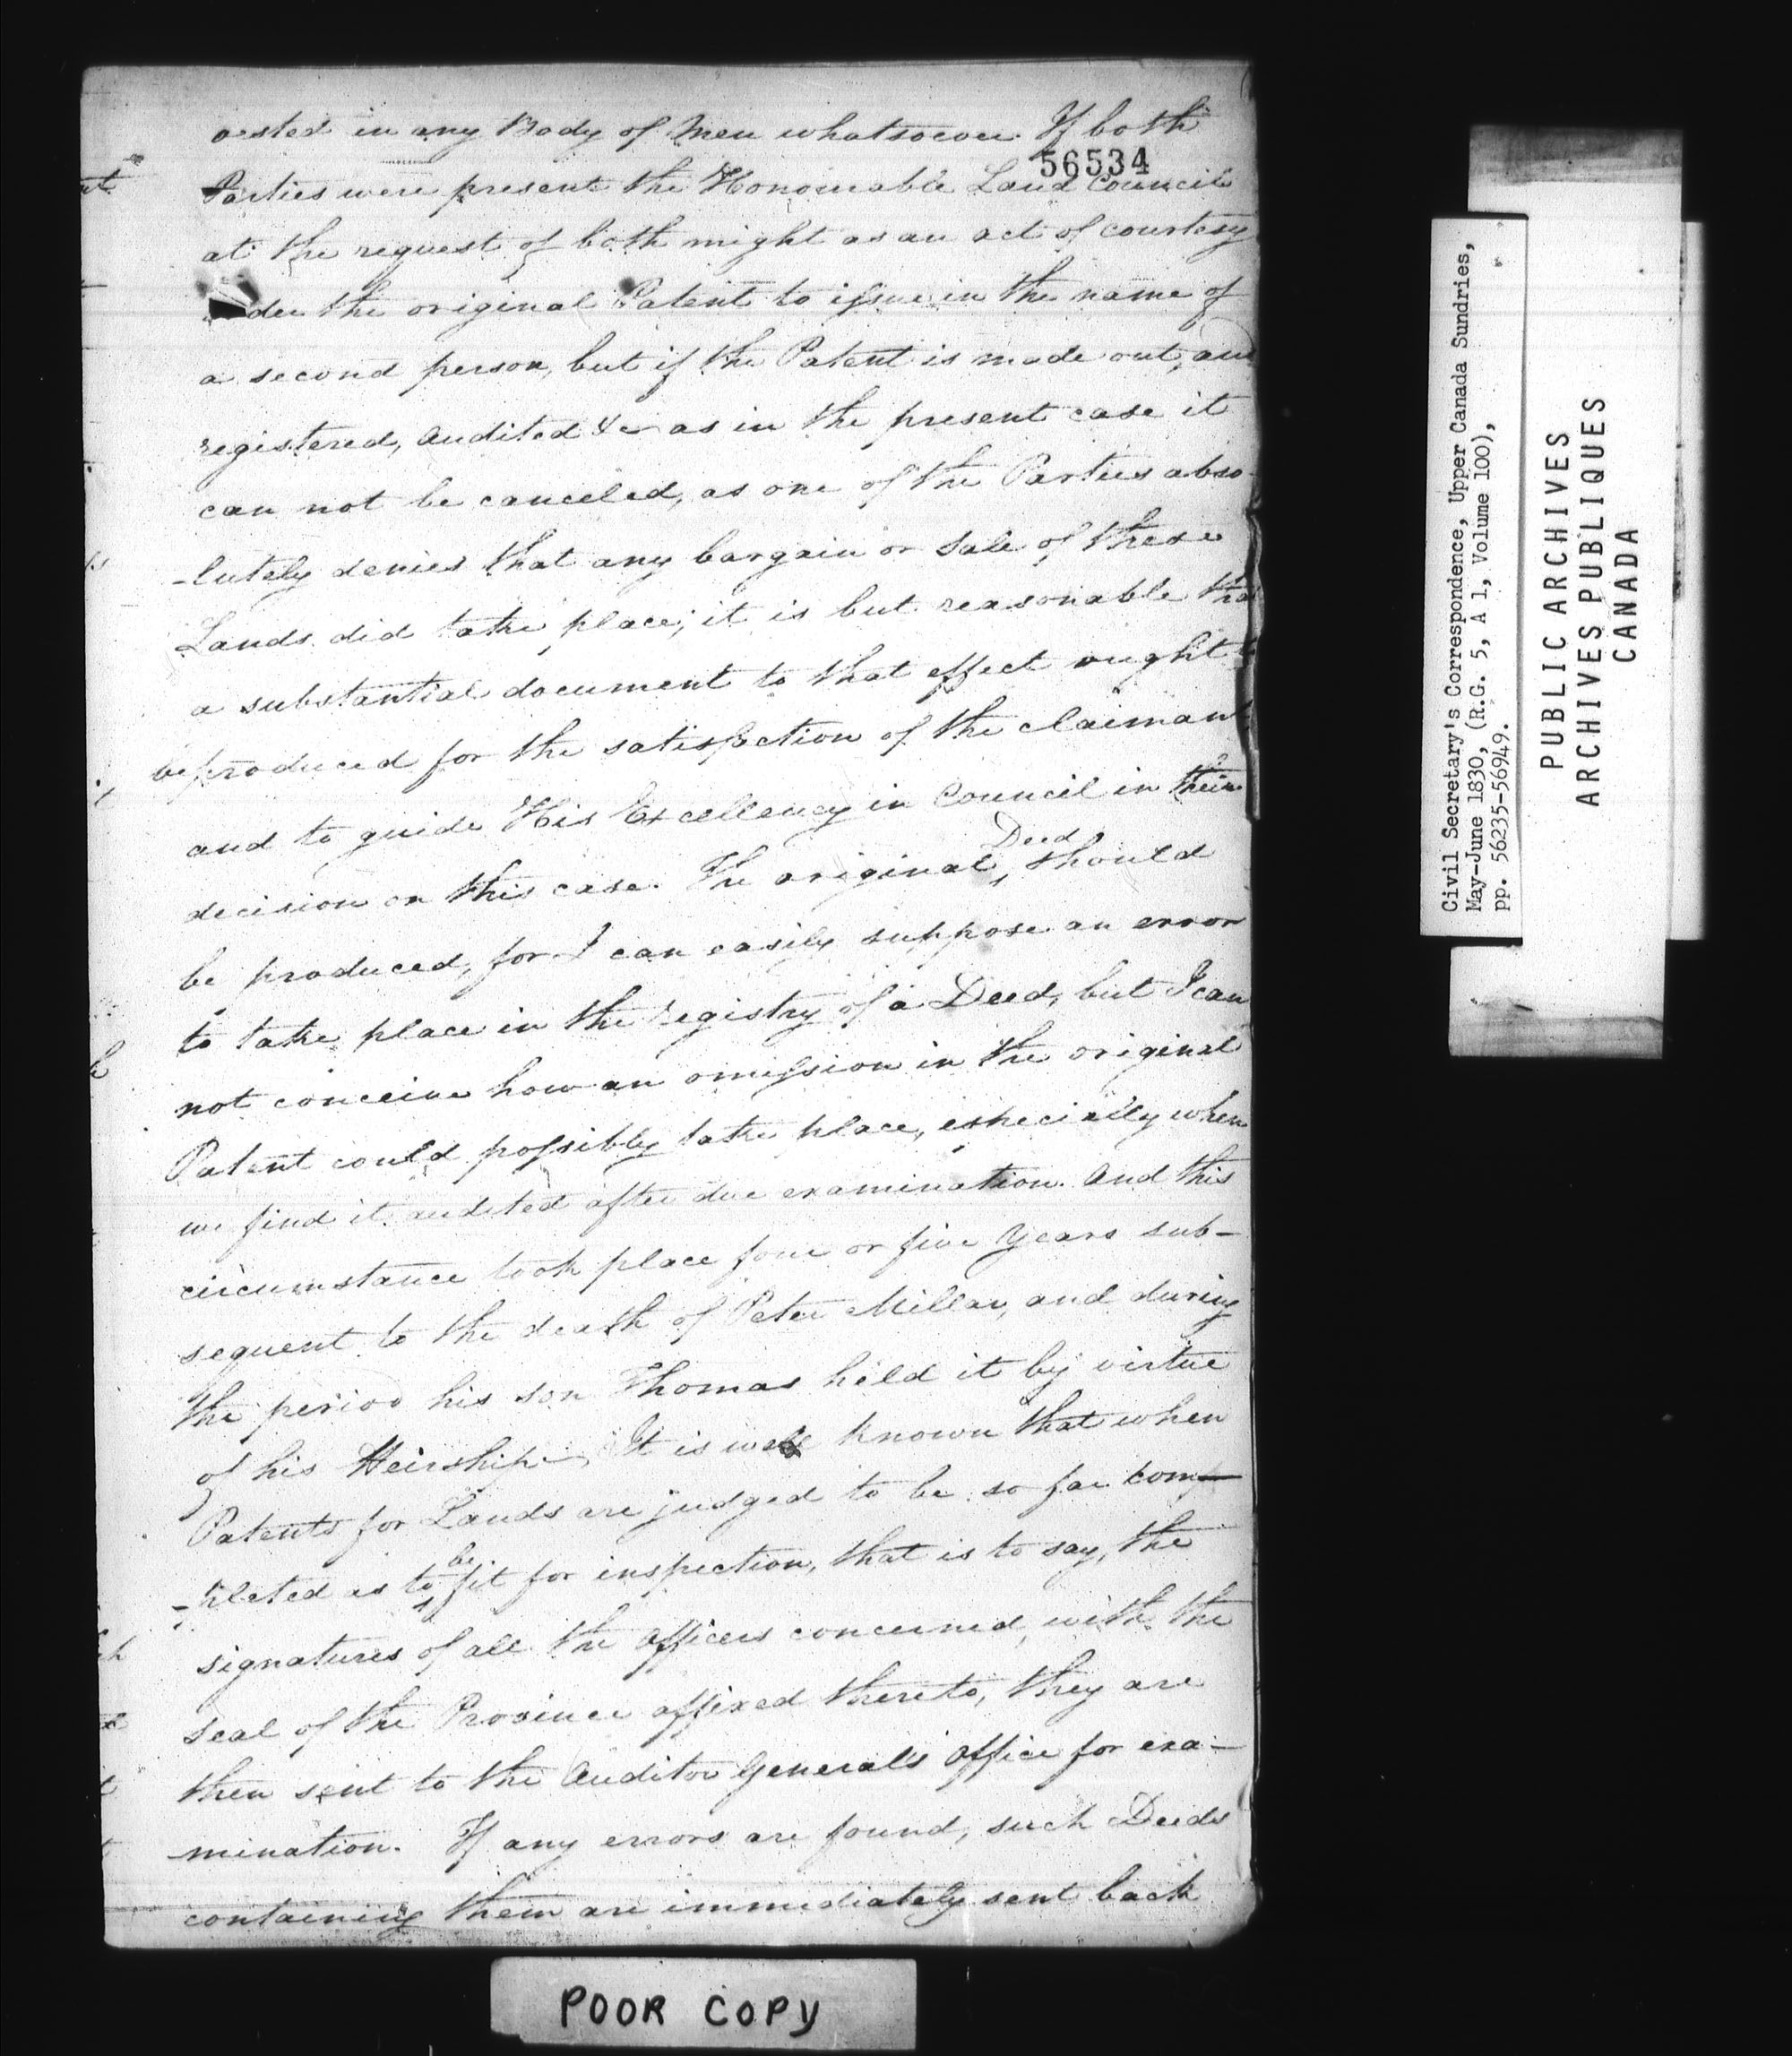 vested in any Body of Men whatsoever. If both
56534
Parties were present the Honourable Land Council
at the request of both might as an act of courtesy
the original Patent to issue in the name of
a second person, but if the Patent is made out, and
registered, audited &c as in the present case it
can not be canceled, as one of the Parties abso-
-lutely denies that any bargain or Sale of these
Lands did take place; it is but reasonable that
a substantial document to that effect ought
be produced for the satisfaction of the claimant
and to guide His Excellency in Council in their
decision on this case. The original Deed, should
be produced, for I can easily suppose an error
to take place in the registry of a Deed, but I can
not conceive how an omission in the original
Patent could possibly take place, especially when
we find it audited after due examination. And this
circumstance took place four or five years sub-
sequent to the death of Peter Millar, and during
the period his son Thomas held it by virtue
of his Heirship. It is well known that when
Patents for Lands are judged to be so far com-
-pleted as to be fit for inspection, that is to say, the
signatures of all the Officers concerned, with the
seal of the Province affixed thereto, they are
then sent to the Auditor General's Office for exa-
-mination. If any errors are found, such Deeds
containing them are immediately sent back
POOR COPY
Civil Secretary's Correspondence, Upper Canada Sundries,
May-June 1830, (R.G. 5, A 1, Volume 100),
pp. 56235-56949.
PUBLIC ARCHIVES
ARCHIVES PUBLIQUES
CANADA